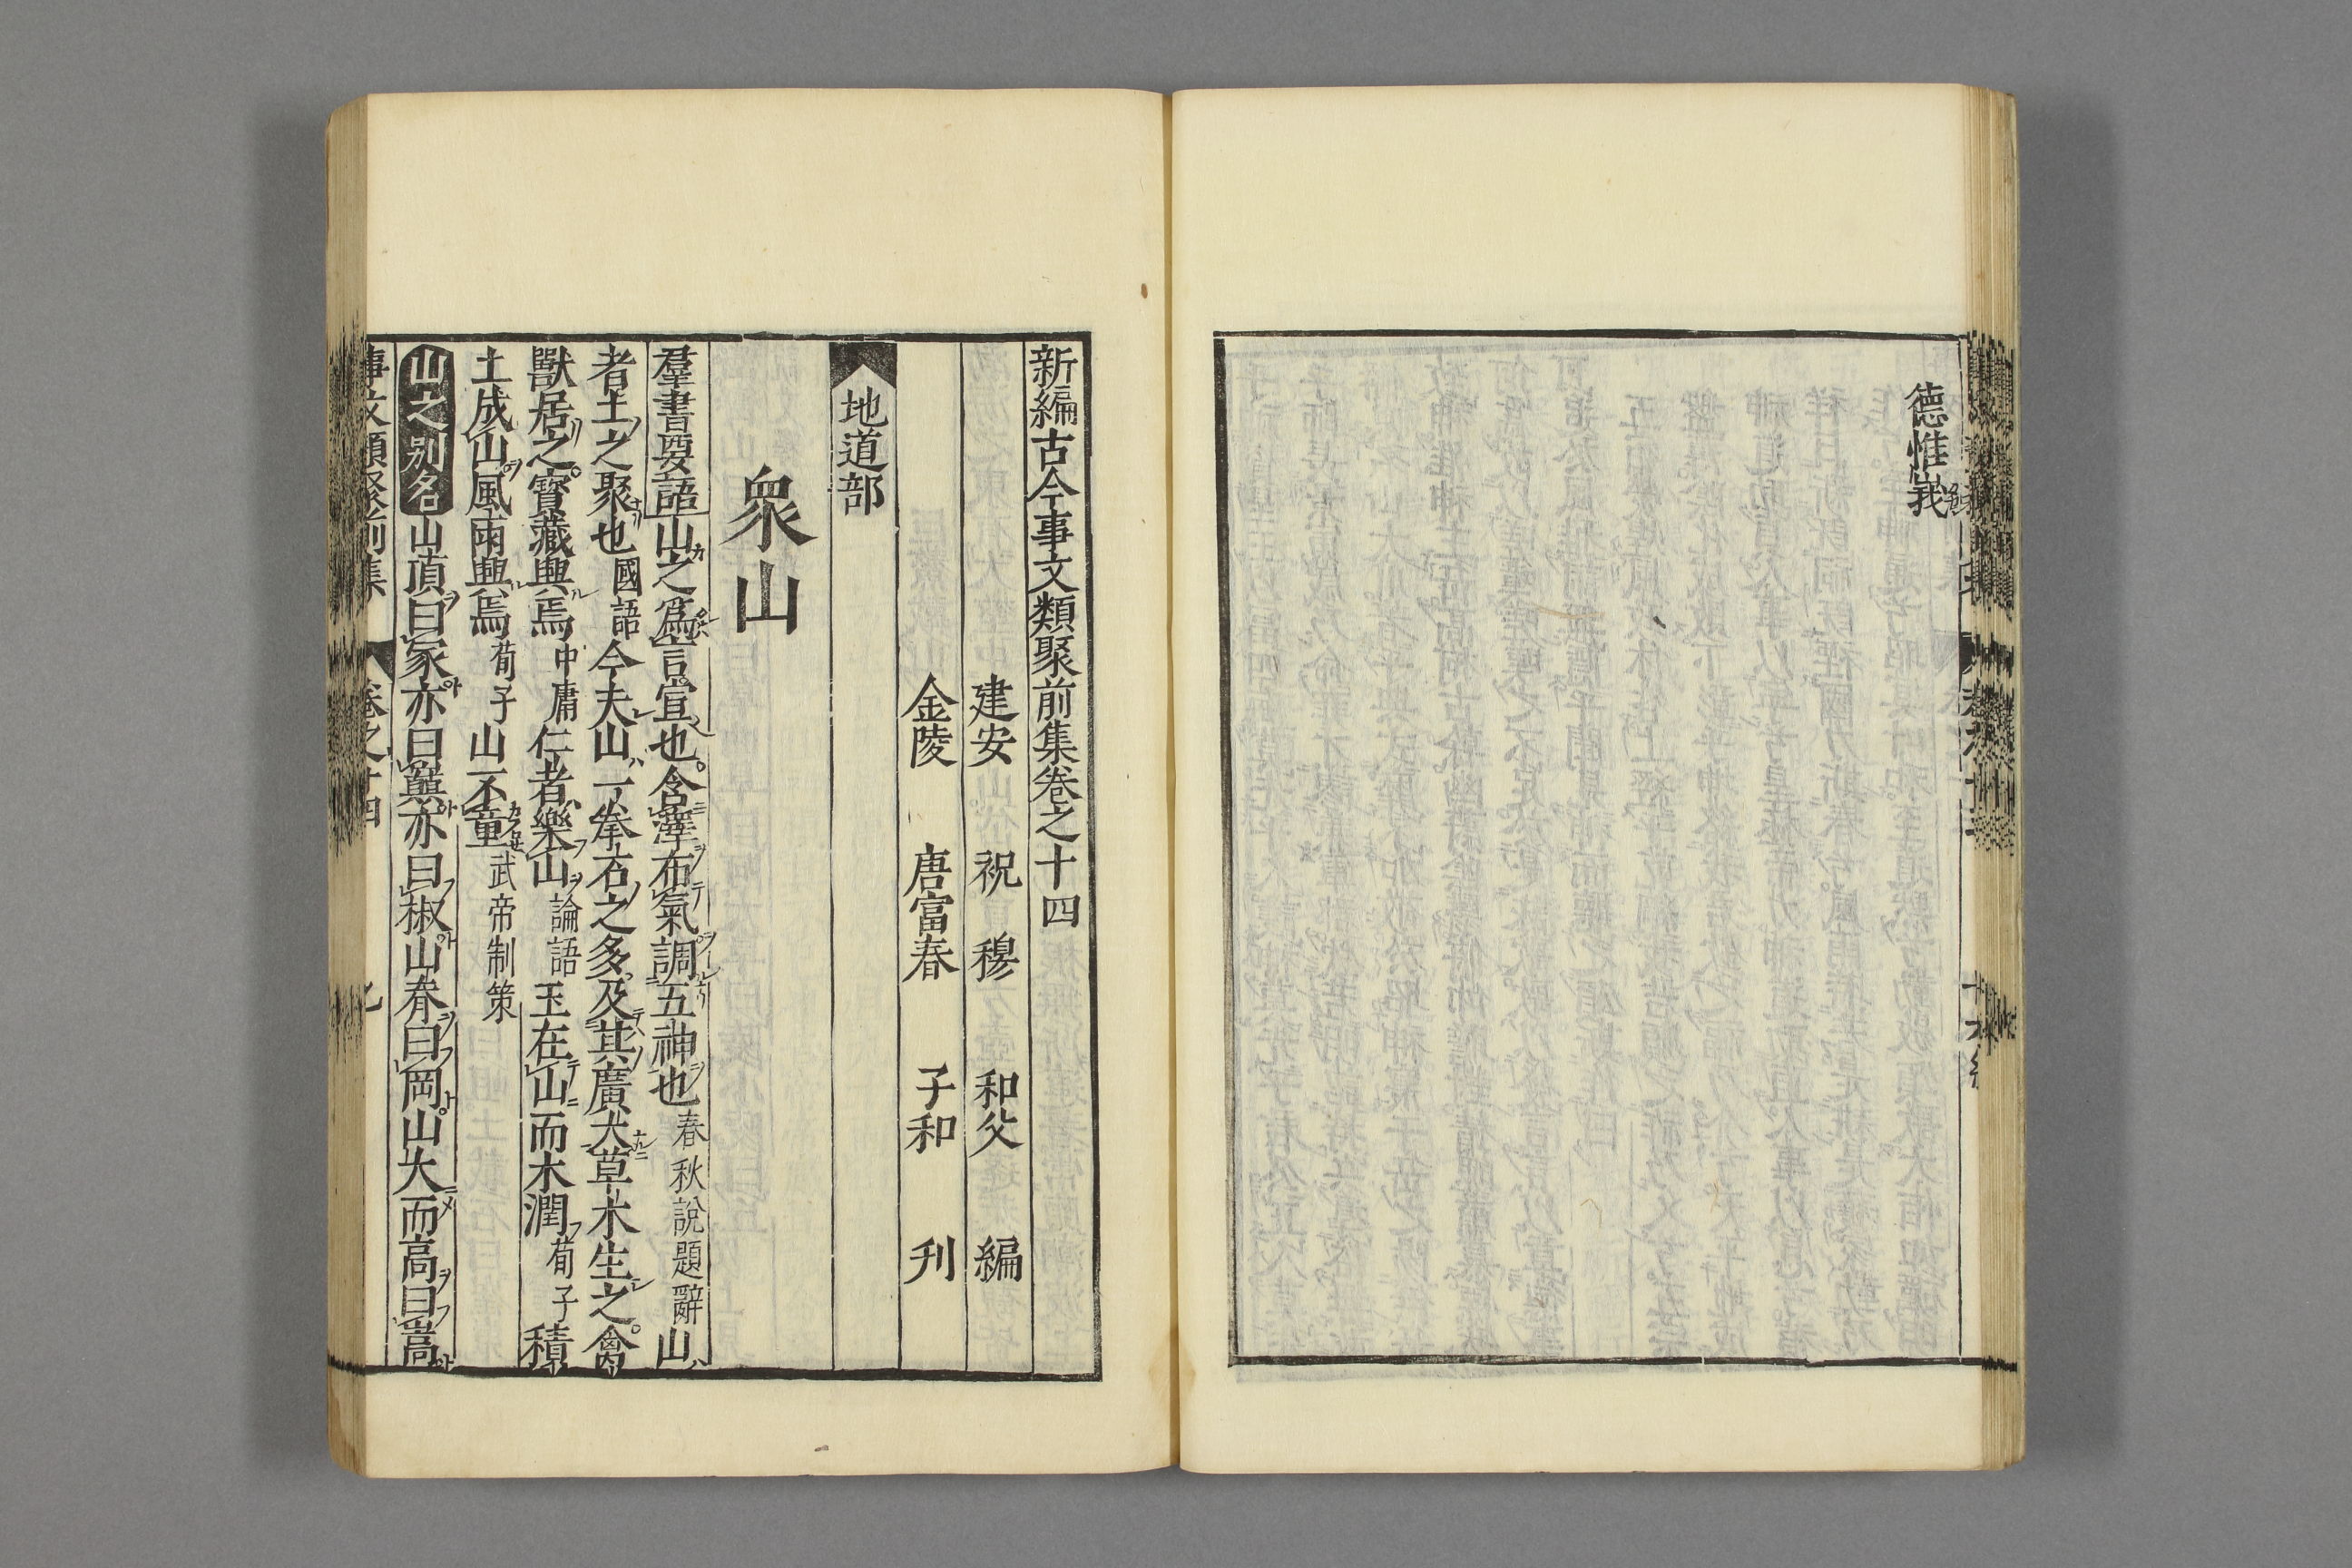 德惟峩
新編古今事文類聚前集卷之十四
建安 祝穆 和父 編
金陵 唐富春 子和 刋
地道部
衆山
羣書要語山之爲言宣也含澤布氣調五神也春秋說題辭山
者土之聚也國語今夫山一拳石之多及其廣大草木生之禽
獸居之寶藏興焉中庸仁者樂山論語玉在山而木潤荀子積
土成山風雨興焉荀子山不童武帝制策
山之别名山頂曰冢亦曰巓亦曰椒山脊曰岡山大而高曰嵩
事文類聚前集 卷之十四